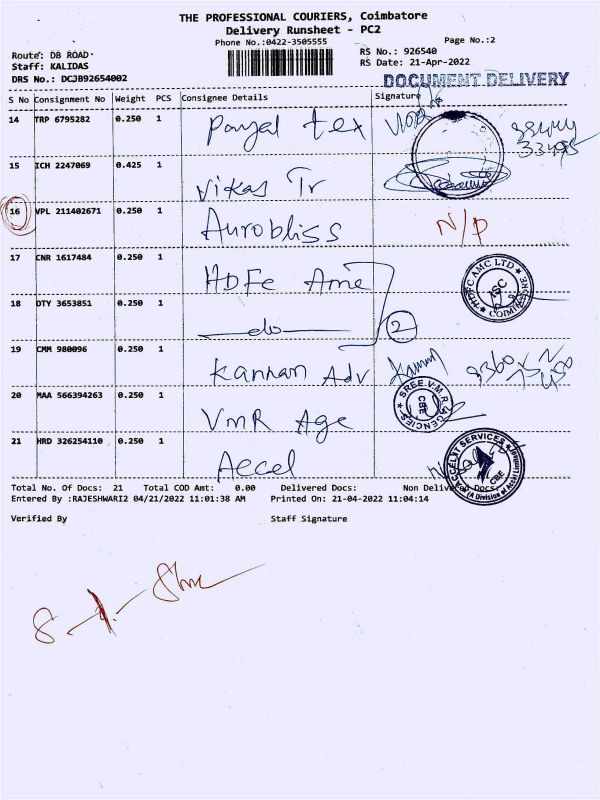 THE PROFESSIONAL COURIERS, Coimbatore
Delivery Runsheet - PC2
Phone No.:0422-3505555
Page No.:2
Route: DB ROAD
RS No.: 926540
Staff: KALIDAS
RS Date: 21-Apr-2022
DRS No.: DCJB92654002
DOCUMENT DELIVERY
S No Consignment No Weight PCS Consignee Details Signature
14 TRP 6795282 0.250 1 Payal tex
15 ICH 2247069 0.425 1 Vikas Tr
16 VPL 211402671 0.250 1 Aurobliss N/P
17 CNR 1617484 0.250 1 HDFc Ame
HDFC AMC LTD
ISC
COIMBATORE
18 OTY 3653851 0.250 1 do 2
19 CMM 980096 0.250 1 Kannan Adv
20 MAA 566394263 0.250 1 VMR Age
SREE V.M.R. AGENCIES
CBE
21 HRD 326254110 0.250 1 Accel
ACCEL IT SERVICES
CBE
(A Division of Accel Limited)
Total No. Of Docs: 21 Total COD Amt: 0.00 Delivered Docs: Non Delivered Docs:
Entered By :RAJESHWARI2 04/21/2022 11:01:38 AM Printed On: 21-04-2022 11:04:14
Verified By Staff Signature